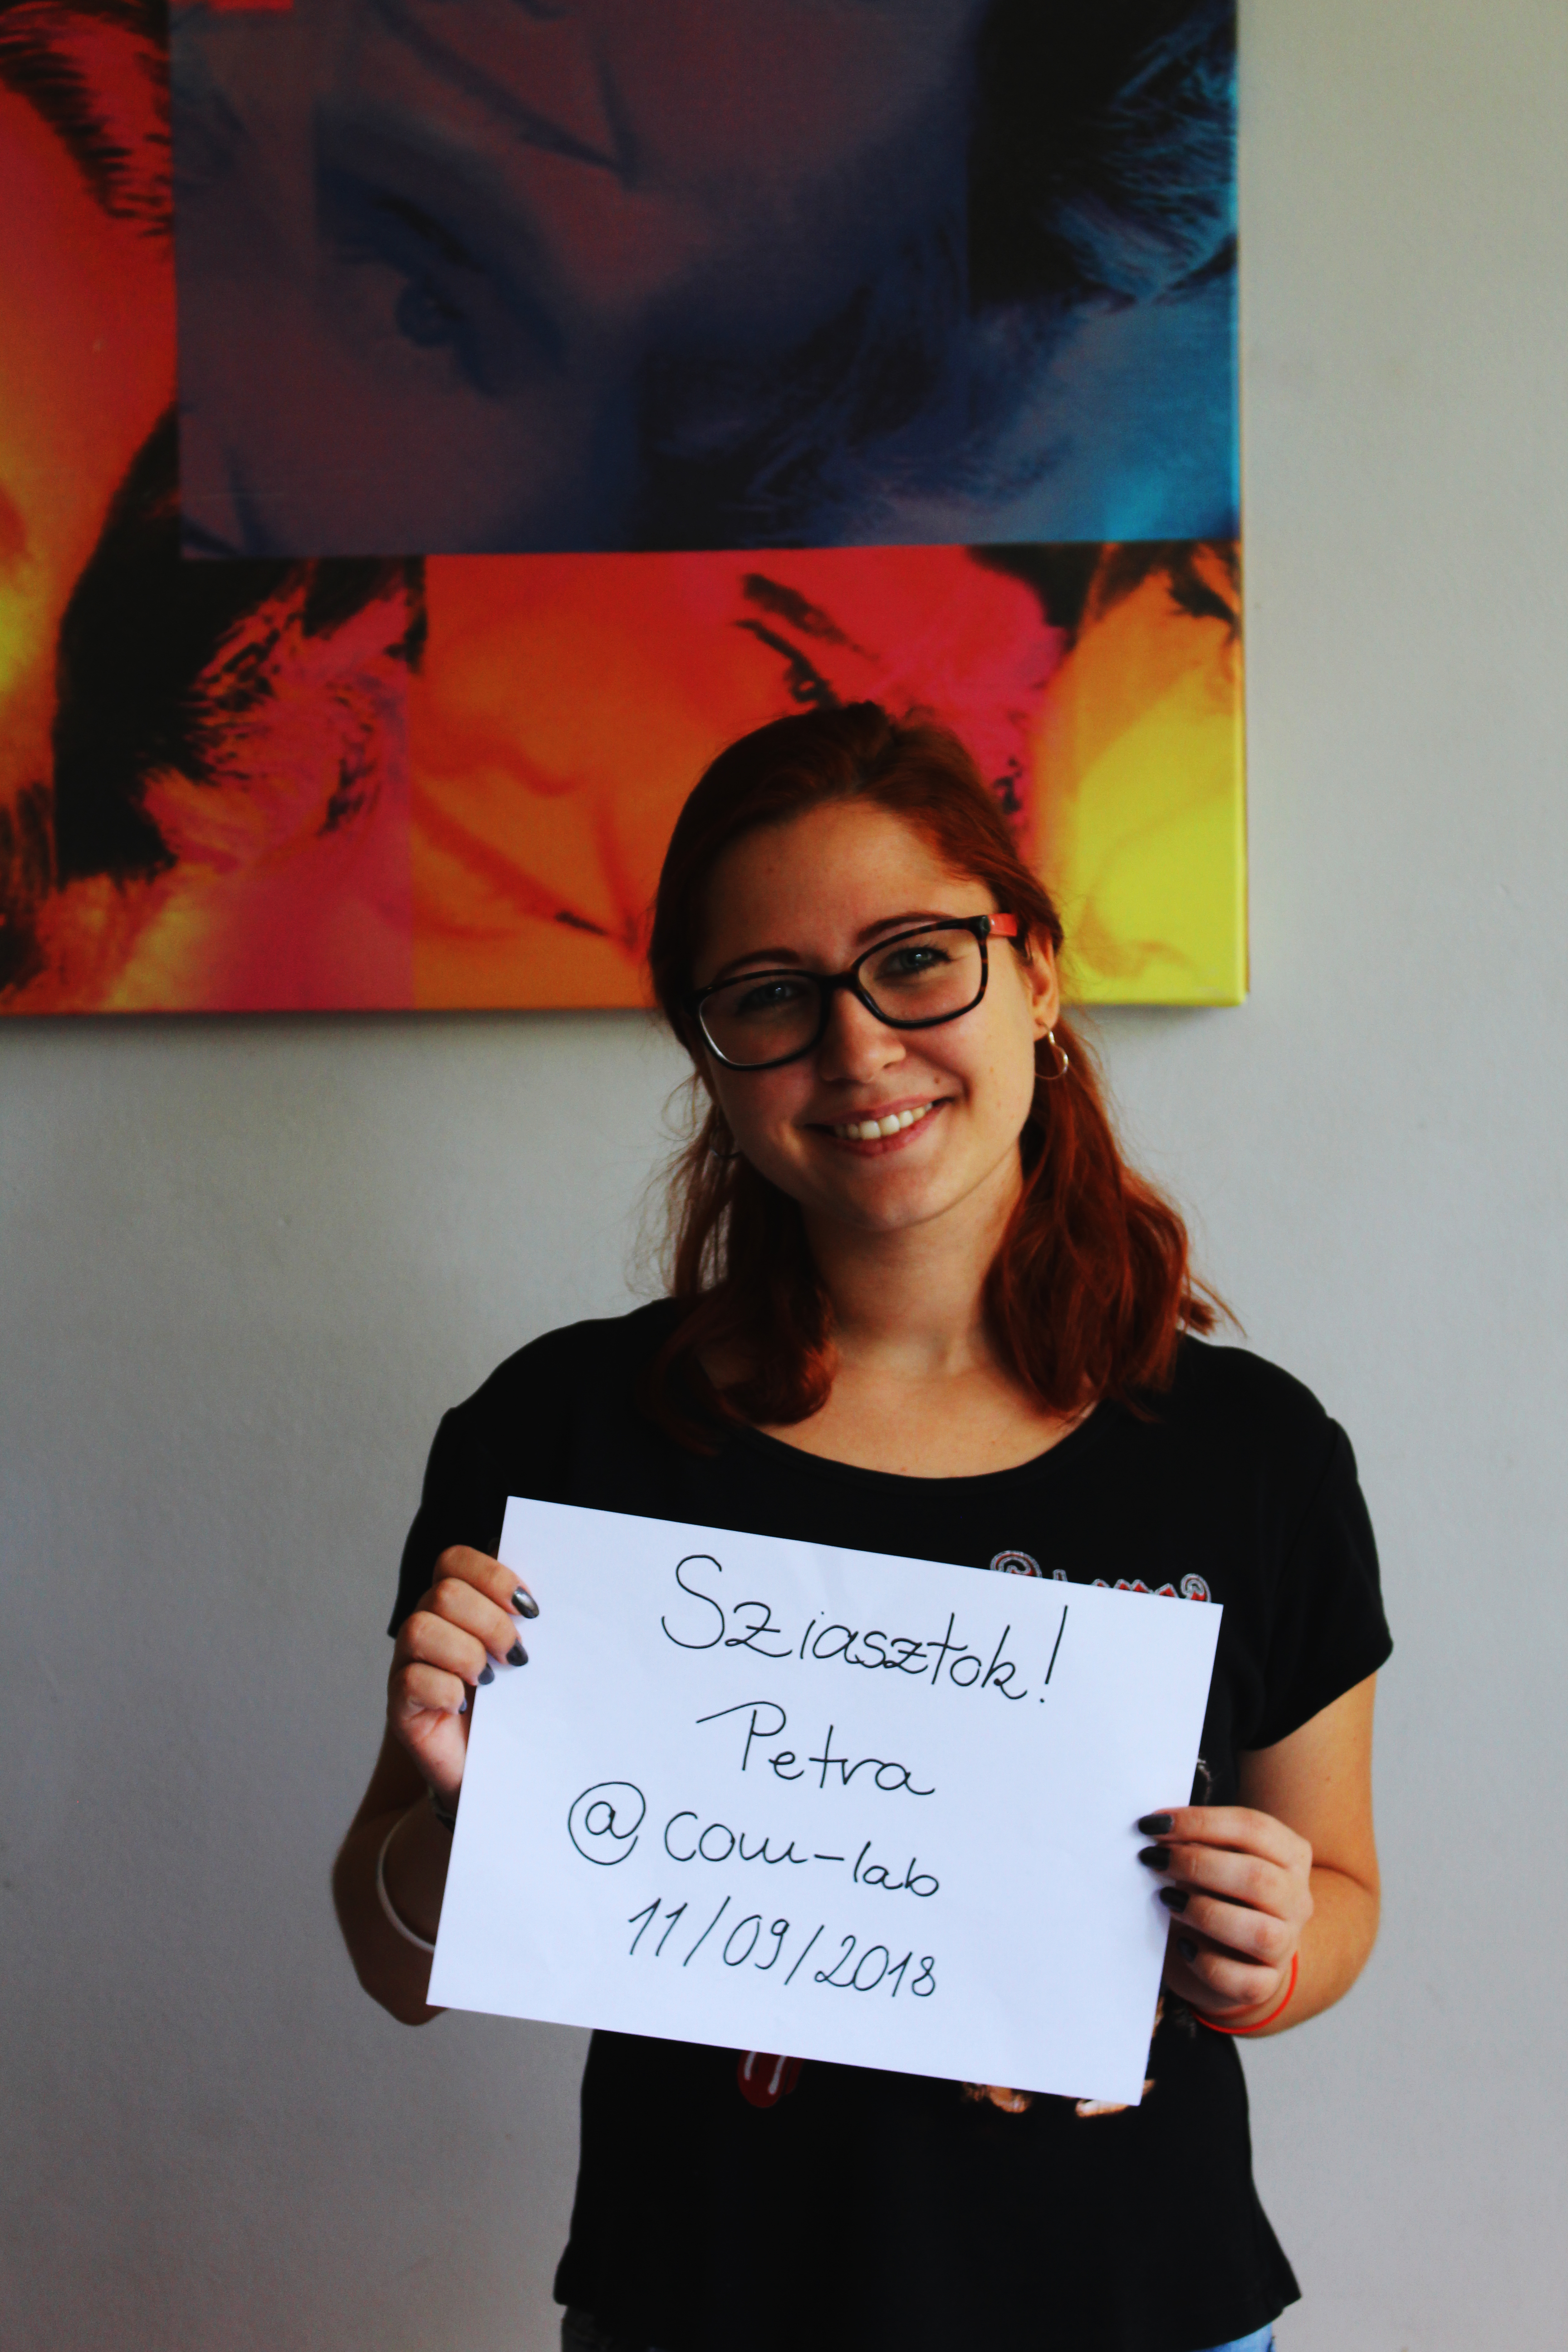 Sziasztok!
Petra
@com-lab
11/09/2018